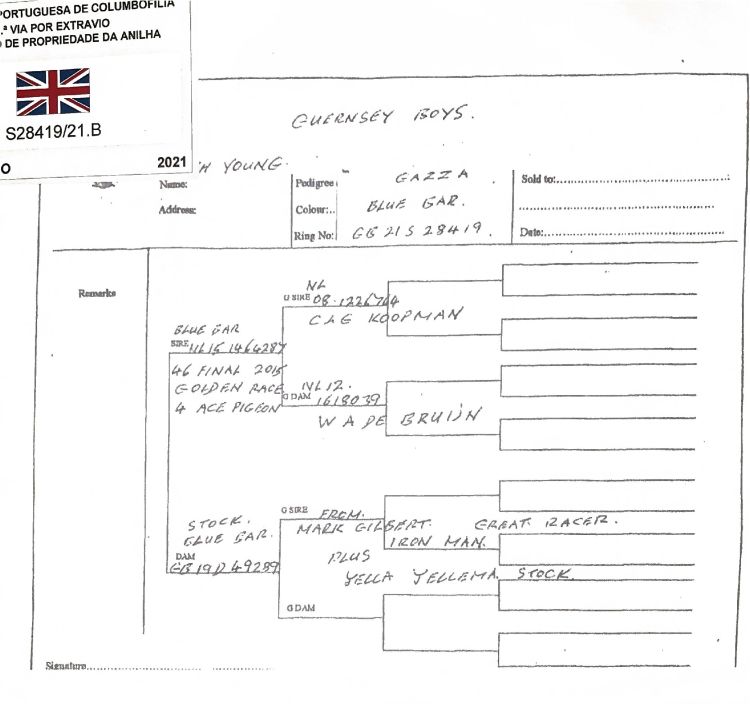 PORTUGUESA DE COLUMBOFILIA
.ª VIA POR EXTRAVIO
O DE PROPRIEDADE DA ANILHA
S28419/21.B
O 2021
GUERNSEY BOYS.
H YOUNG.
Name:
Address:
Pedigree GAZZA.
Colour:.. BLUE BAR.
Ring No: GB 21 S 28419.
Sold to:
Date:
Remarks
NL
G SIRE 08.1226764
C & G KOOPMAN
BLUE BAR
SIRE NL15 1464287
46 FINAL 2015
GOLDEN RACE
4 ACE PIGEON
NL 12.
G DAM 1618039
W A DE BRUIJN
G SIRE FROM.
MARK GILBERT. GREAT RACER.
IRON MAN.
STOCK.
BLUE BAR.
DAM
GB 19 D 49289
PLUS
YELLA YELLEMA. STOCK.
G DAM
Signature